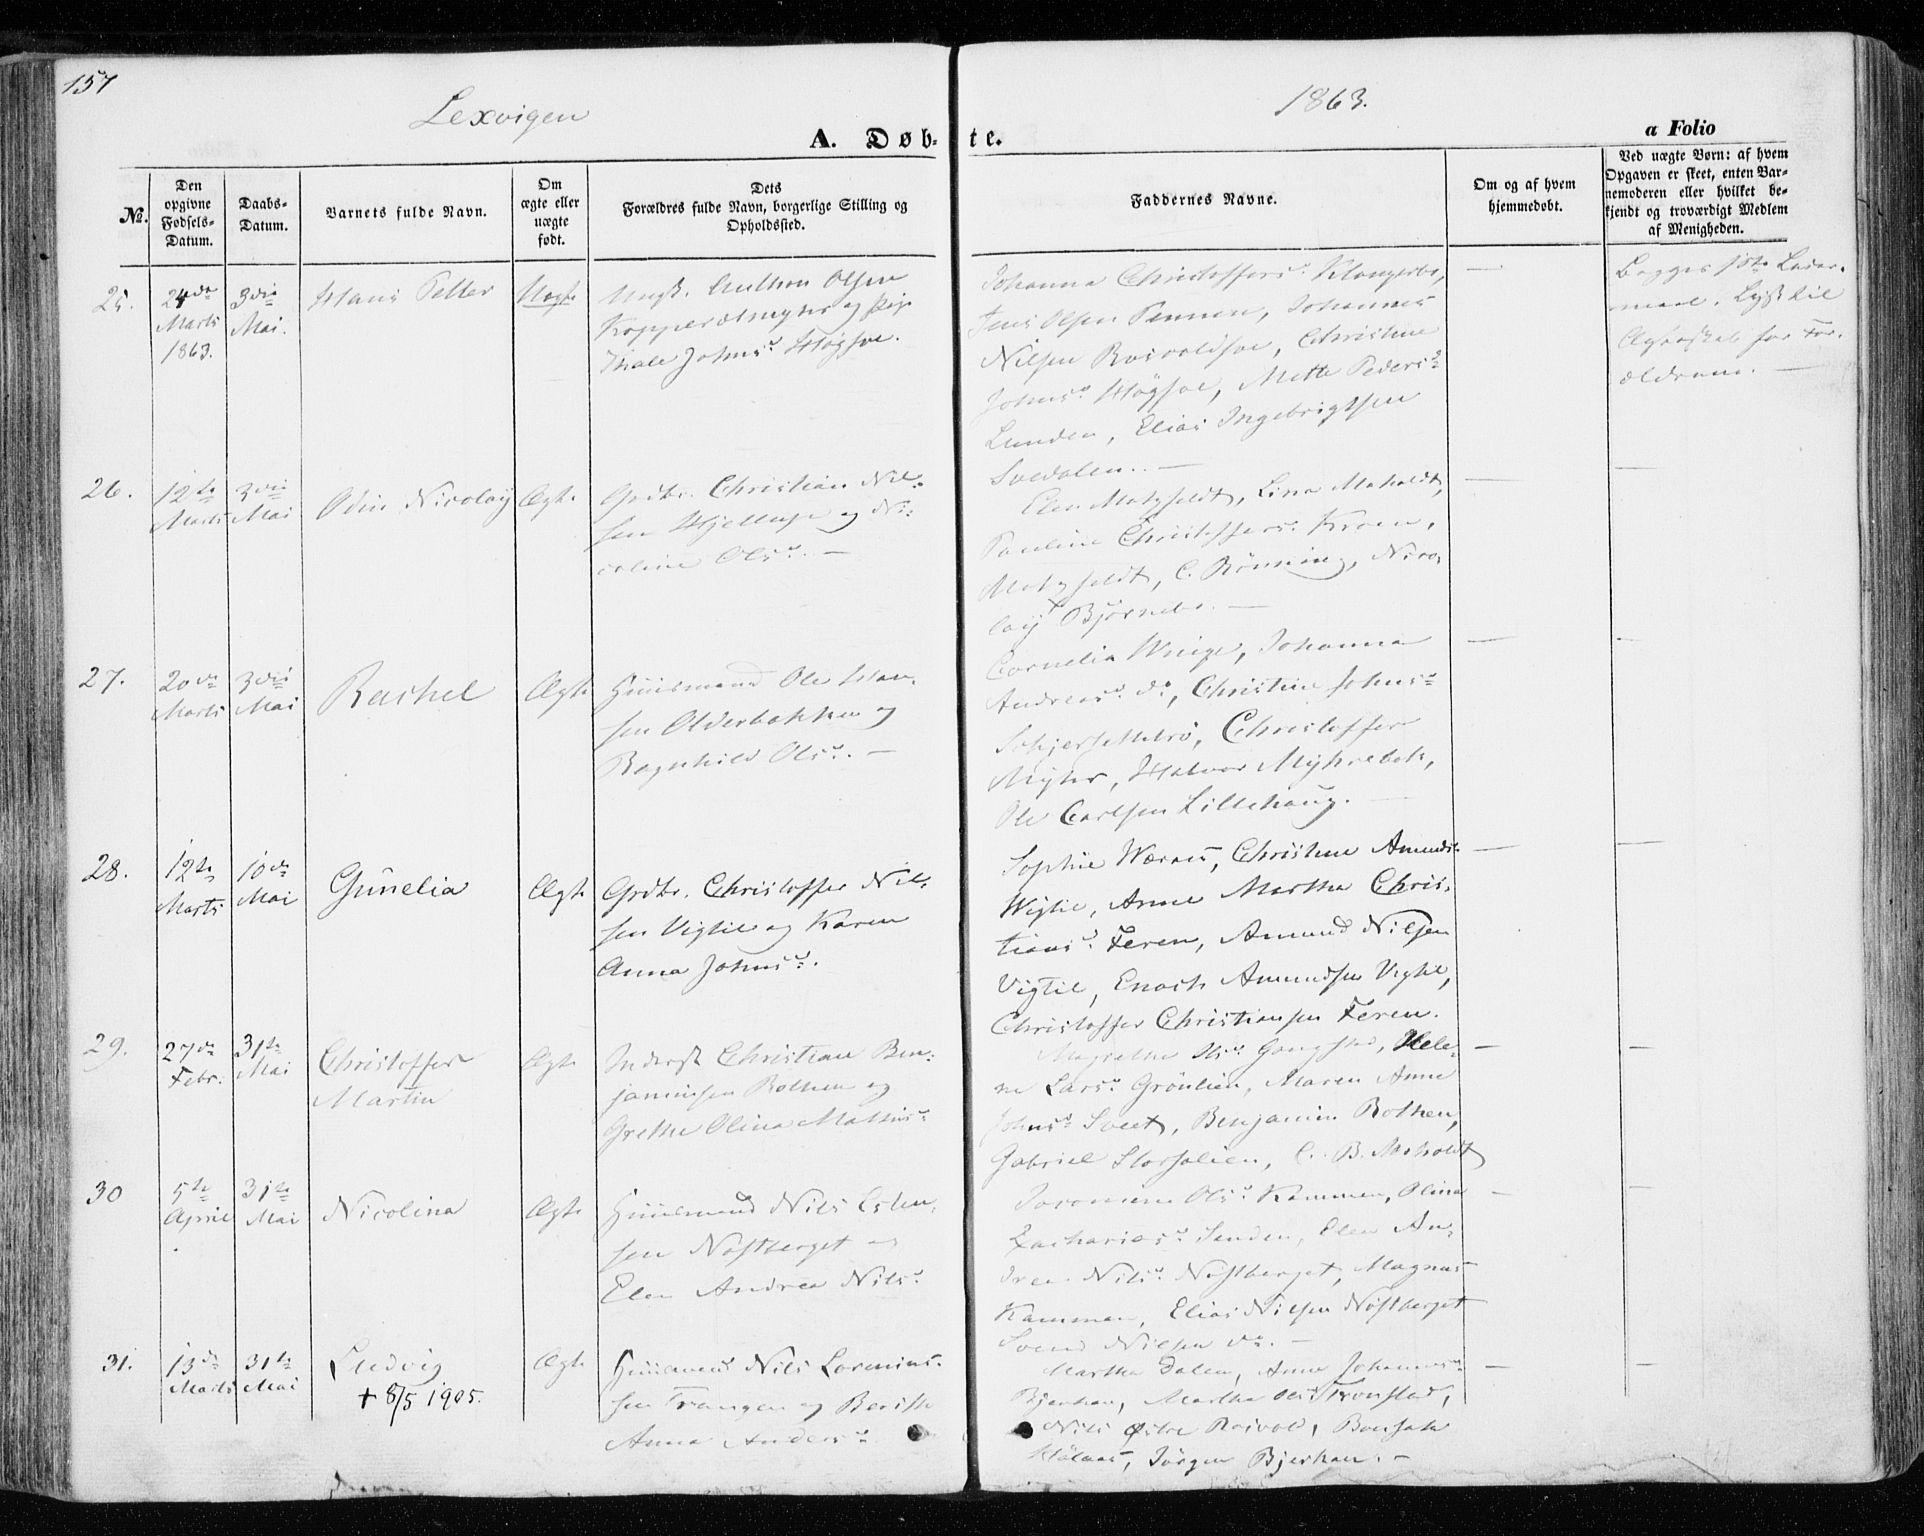 157
Lexvigen
1863.
A. Døbte.
a Folio
No.
Den opgivne Fødsels-Datum.
Daabs-Datum.
Barnets fulde Navn.
Om ægte eller uægte født.
Dets Forældres fulde Navn, borgerlige Stilling og Opholdssted.
Faddernes Navne.
Om og af hvem hjemmedøbt.
Ved uægte Børn: af hvem Opgaven er skeet, enten Barnemoderen eller hvilket bekjendt og troværdigt Medlem af Menigheden.
25.
24de Marts 1863.
3die Mai.
Hans Petter
Uægte
Ungk. Anthon Olsen
og Pige
Johnsd. Høgsve.
Johanna Christoffersd.
Jens Olsen Pennen, Johannes
Nilsen Christine
Johnsd. Høgsve, Mette Pedersd.
Lunden, Elias Ingebrigtsen
Svedalen. —
Begges 1ste Leier-
maal. Lyst til
Ægteskab for For-
ældrene. —
26.
12te Marts
3die Mai
Odin Nicolay
Ægte
Grdbr. Christian Nil-
sen og Ni-
coline Olsd. —
Elen Motzfeldt, Lina Moholdt,
Pauline Christoffersd. Kroen,
Motzfeldt, C. Rönning, Nico-
lay Björnebo. —
27.
20de Marts
3die Mai
Rachel
Ægte
Huusmand Ole Han-
sen Olderbakken og
Ragnhild Olsd. —
Cornelia Winge, Johanna
Andreasd. do, Christine Johnsd.
Christoffer
Myhr, Halvor Myhrebak,
Ole Carlsen Lillehaug. —
28.
12te Marts
10de Mai
Gunelia
Ægte
Grdbr. Christoffer Nil-
sen Vigtil og Karen
Anna Johnsd.
Sophie Wærnes, Christine Amundsd.
Wigtil, Anne Martha Chris-
tiansd. Feren, Amund Nilsen
Vigtil, Enoch Amundsen Vigtil,
Christoffer Christiansen Feren.
29.
27de Febr.
31te Mai
Christoffer
Martin
Ægte
Inderst Christian Ben-
jaminsen Rothen og
Grethe Olina Mathisd.
Magrethe Olsd. Gangstad, Hele-
ne Larsd. Grönlien, Maren Anne
Johnsd. Sveet, Benjamin Rothen,
Gabriel Storsalien, C. B. Moholdt
30
5te April
31te Mai
Nicolina
Ægte
Huusmand Nils Esten-
sen Nøstberget og
Elen Andrea Nilsd.
Olsd. Kammen, Olina
Zachariasd. Elen An-
drea Nilsd. Nøstberget, Magnus
Kammen, Elias Nilsen Nøstberget
Svend Nilsen do. —
31.
13de Marts
31te Mai
Ludvig
+ 8/5 1905.
Ægte
Huusmand Nils Lornius-
sen Trangen og Berith
Anna Andersd.
Martha Dalen, Anne Johannesd.
Bjerkan, Martha Olsd. Tronstad,
Nils Østre Bonsak
Jörgen Bjerkan. —